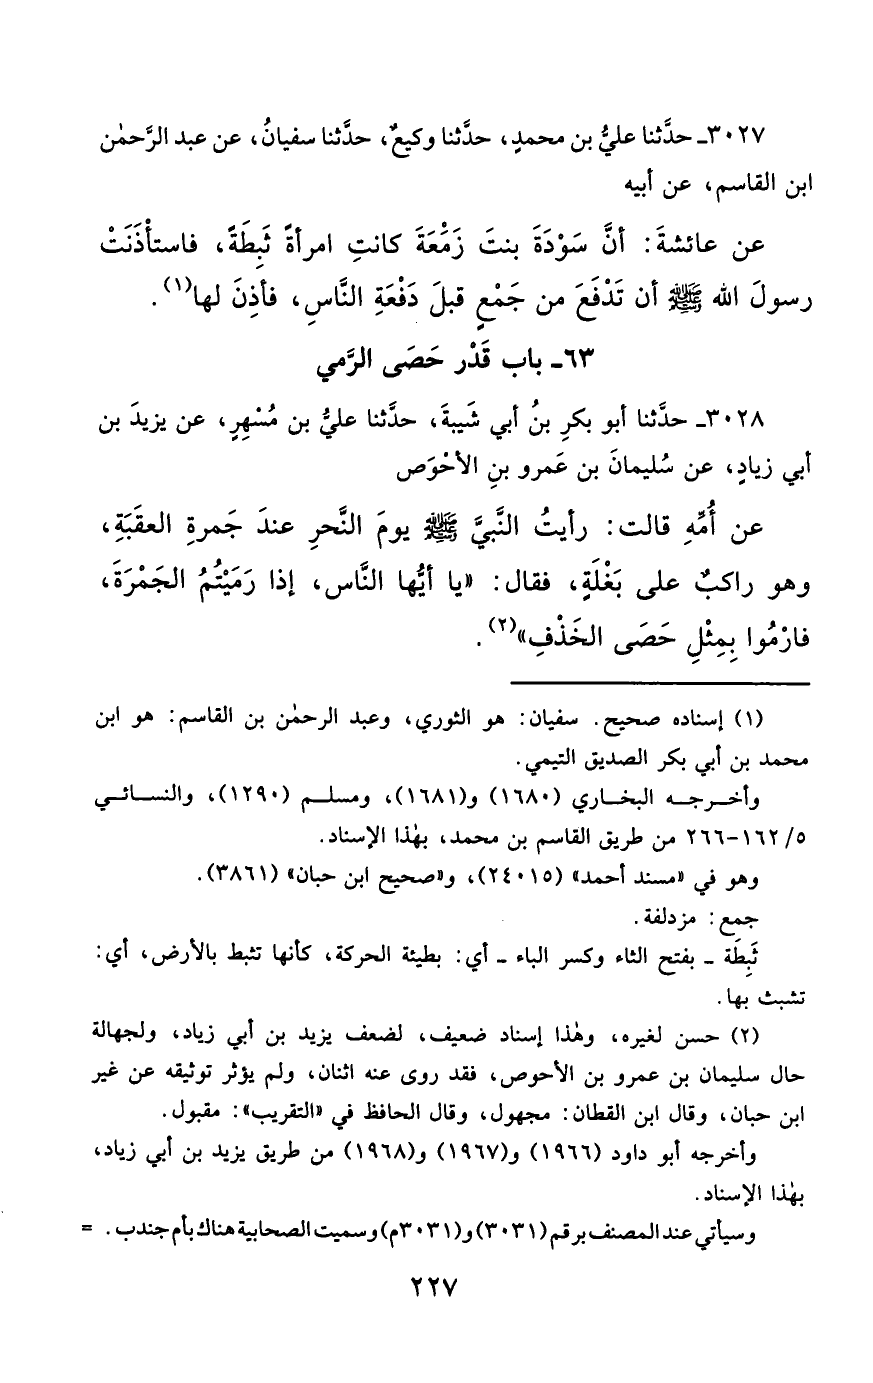 ٣٠٢٧ـ حدَّثنا عليُّ بن محمدٍ، حدَّثنا وكيعٌ، حدَّثنا سفيانُ، عن عبد الرَّحمٰن
ابن القاسم، عن أبيه
عن عائشةَ: أنَّ سَوْدَةَ بنتَ زَمْعَةَ كانتِ امرأةً ثَبِطَةً، فاستأْذَنَتْ
رسولَ الله ﷺ أن تَدْفَعَ من جَمْعٍ قبلَ دَفْعَةِ النَّاسِ، فأذِنَ لها(١).
٦٣ـ باب قَدْر حَصَى الرَّمي
٣٠٢٨ـ حدَّثنا أبو بكرِ بنُ أبي شَيبةَ، حدَّثنا عليُّ بن مُسْهِرٍ، عن يزيدَ بن
أبي زيادٍ، عن سُليمانَ بن عَمرو بنِ الأحْوَص
عن أُمِّهِ قالت: رأيتُ النَّبيَّ ﷺ يومَ النَّحرِ عندَ جَمرةِ العقَبَةِ،
وهو راكبٌ على بَغْلَةٍ، فقال: «يا أيُّها النَّاس، إذا رَمَيْتُمُ الجَمْرَةَ،
فارْمُوا بِمِثْلِ حَصَى الخَذْفِ»(٢).
(١) إسناده صحيح. سفيان: هو الثوري، وعبد الرحمٰن بن القاسم: هو ابن
محمد بن أبي بكر الصديق التيمي.
وأخرجه البخاري (١٦٨٠) و(١٦٨١)، ومسلم (١٢٩٠)، والنسائي
٥/ ١٦٢-٢٦٦ من طريق القاسم بن محمد، بهٰذا الإسناد.
وهو في «مسند أحمد» (٢٤٠١٥)، و«صحيح ابن حبان» (٣٨٦١).
جمع: مزدلفة.
ثَبِطَة ـ بفتح الثاء وكسر الباء ـ أي: بطيئة الحركة، كأنها تثبط بالأرض، أي:
تشبث بها.
(٢) حسن لغيره، وهٰذا إسناد ضعيف، لضعف يزيد بن أبي زياد، ولجهالة
حال سليمان بن عمرو بن الأحوص، فقد روى عنه اثنان، ولم يؤثر توثيقه عن غير
ابن حبان، وقال ابن القطان: مجهول، وقال الحافظ في «التقريب»: مقبول.
وأخرجه أبو داود (١٩٦٦) و(١٩٦٧) و(١٩٦٨) من طريق يزيد بن أبي زياد،
بهٰذا الإسناد.
وسيأتي عند المصنف برقم (٣٠٣١) و(٣٠٣١م) وسميت الصحابية هناك بأم جندب. =
٢٢٧